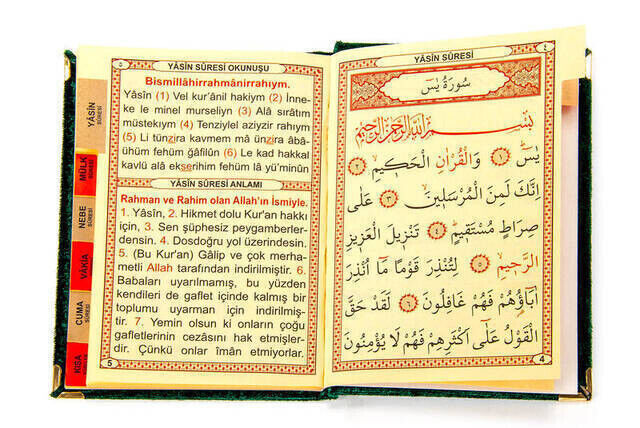 YÂSİN
SÛRESİ
MÜLK
SÛRESİ
NEBE
SÛRESİ
VÂKIA
CUMA
SÛRESİ
KISA
٥
YÂSİN SÛRESİ OKUNUŞU
Bismillâhirrahmânirrahıym.
Yâsîn (1) Vel kur'ânil hakiym (2) İnne-
ke le minel murseliyn (3) Alâ sırâtım
müstekıym (4) Tenziylel aziyzir rahıym
(5) Li tünzira kavmem mâ ünzira âbâ-
ühüm fehüm ğâfilûn (6) Le kad hakkal
kavlü alâ ekserihim fehüm lâ yü'minûn
YÂSİN SÛRESİ ANLAMI
Rahman ve Rahim olan Allah'ın İsmiyle.
1. Yâsîn, 2. Hikmet dolu Kur'an hakkı
için, 3. Sen şüphesiz peygamberler-
densin. 4. Dosdoğru yol üzerindesin.
5. (Bu Kur'an) Gâlip ve çok merha-
metli Allah tarafından indirilmiştir. 6.
Babaları uyarılmamış, bu yüzden
kendileri de gaflet içinde kalmış bir
toplumu uyarman için indirilmiş-
tir. 7. Yemin olsun ki onların çoğu
gafletlerinin cezasını hak etmişler-
dir. Çünkü onlar îmân etmiyorlar.
5
YÂSİN SÛRESİ
٤
سُورَةُ يٰسٓ
بِسْمِ اللّٰهِ الرَّحْمٰنِ الرَّحِيمِ
يٰسٓ ﴿١﴾ وَالْقُرْاٰنِ الْحَكِيمِ ﴿٢﴾
اِنَّكَ لَمِنَ الْمُرْسَلِينَ ﴿٣﴾ عَلٰى
صِرَاطٍ مُسْتَقِيمٍ ﴿٤﴾ تَنْزِيلَ الْعَزِيزِ
الرَّحِيمِ ﴿٥﴾ لِتُنْذِرَ قَوْمًا مَٓا اُنْذِرَ
اٰبَٓاؤُهُمْ فَهُمْ غَافِلُونَ ﴿٦﴾ لَقَدْ حَقَّ
الْقَوْلُ عَلٰٓى اَكْثَرِهِمْ فَهُمْ لَا يُؤْمِنُونَ
4